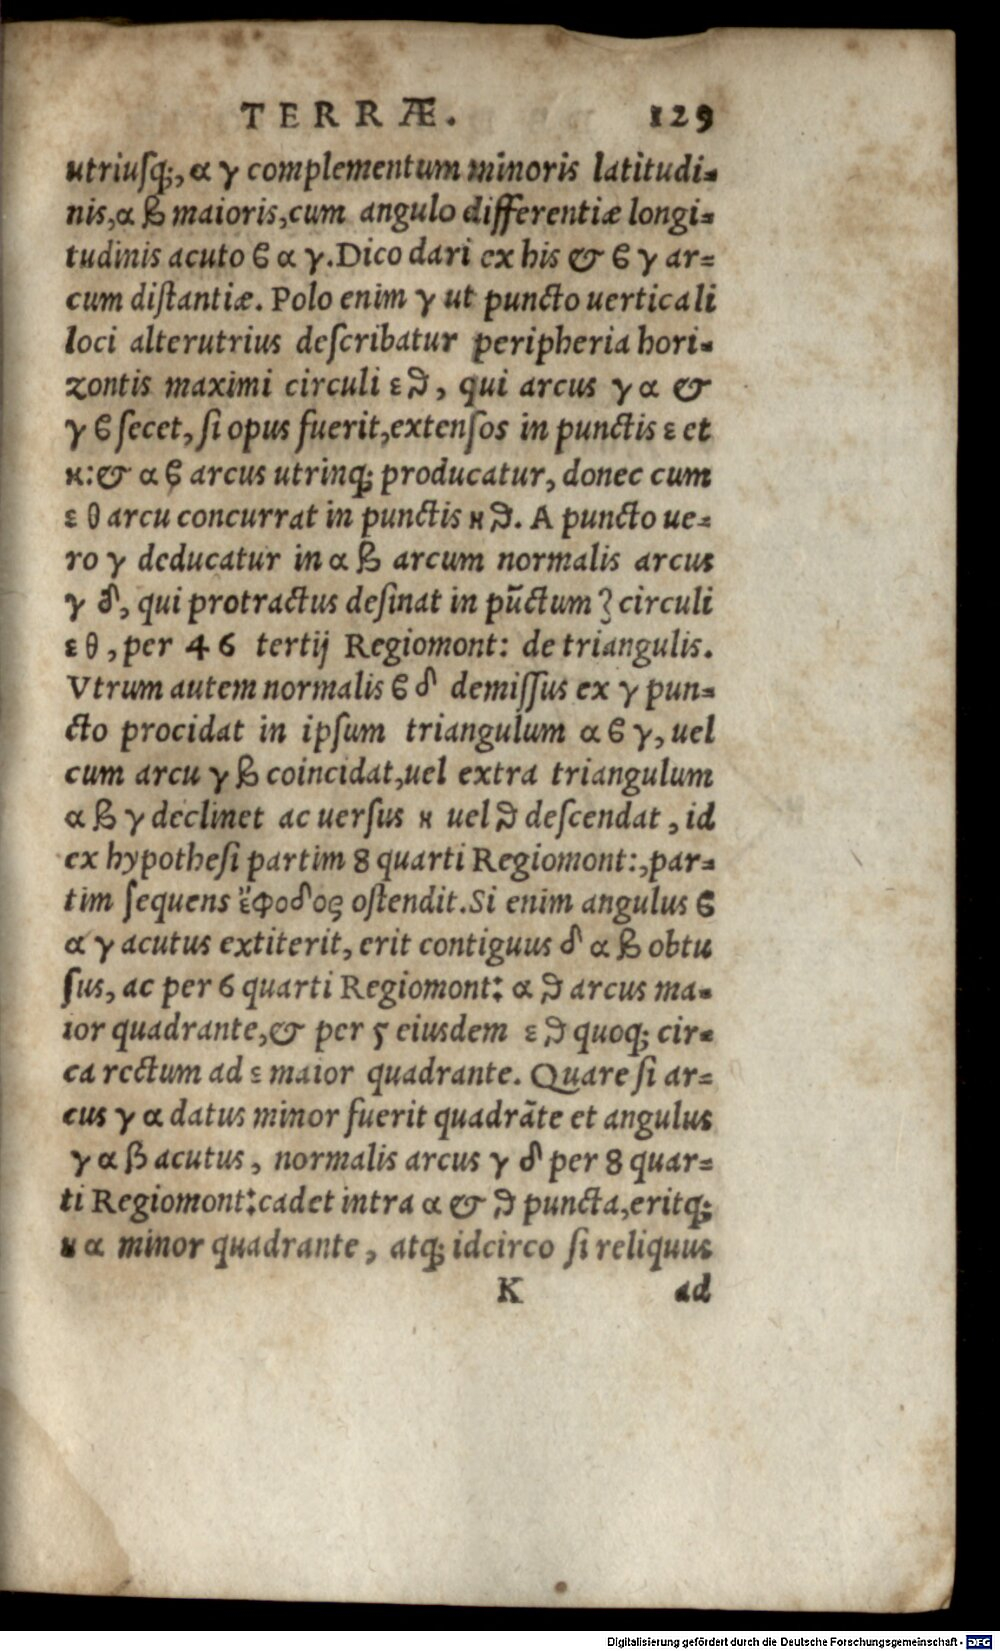 TERRÆ. 129
utriusq;, α γ complementum minoris latitudi-
nis, α ß maioris, cum angulo differentiæ longi-
tudinis acuto ϐ α γ. Dico dari ex his & ϐ γ ar-
cum distantiæ. Polo enim γ ut puncto uerticali
loci alterutrius describatur peripheria hori-
zontis maximi circuli ε ϑ, qui arcus γ α &
γ ϐ secet, si opus fuerit, extensos in punctis ε et
κ: & α ϐ arcus utrinq; producatur, donec cum
ε θ arcu concurrat in punctis ϰ ϑ. A puncto ue-
ro γ deducatur in α ß arcum normalis arcus
γ δ, qui protractus desinat in pũctum ζ circuli
ε θ, per 46 tertij Regiomont: de triangulis.
Vtrum autem normalis ϐ δ demissus ex γ pun-
cto procidat in ipsum triangulum α ϐ γ, uel
cum arcu γ ß coincidat, uel extra triangulum
α ß γ declinet ac uersus ϰ uel ϑ descendat, id
ex hypothesi partim 8 quarti Regiomont:, par-
tim sequens ἔφοδος ostendit. Si enim angulus ϐ
α γ acutus extiterit, erit contiguus δ α ß obtu
sus, ac per 6 quarti Regiomont: α ϑ arcus ma-
ior quadrante, & per 5 eiusdem ε ϑ quoq; cir-
ca rectum ad ε maior quadrante. Quare si ar-
cus γ α datus minor fuerit quadrãte et angulus
γ α ß acutus, normalis arcus γ δ per 8 quar-
ti Regiomont: cadet intra α & ϑ puncta, eritq;
ϰ α minor quadrante, atq; idcirco si reliquus
K ad
Digitalisierung gefördert durch die Deutsche Forschungsgemeinschaft - DFG